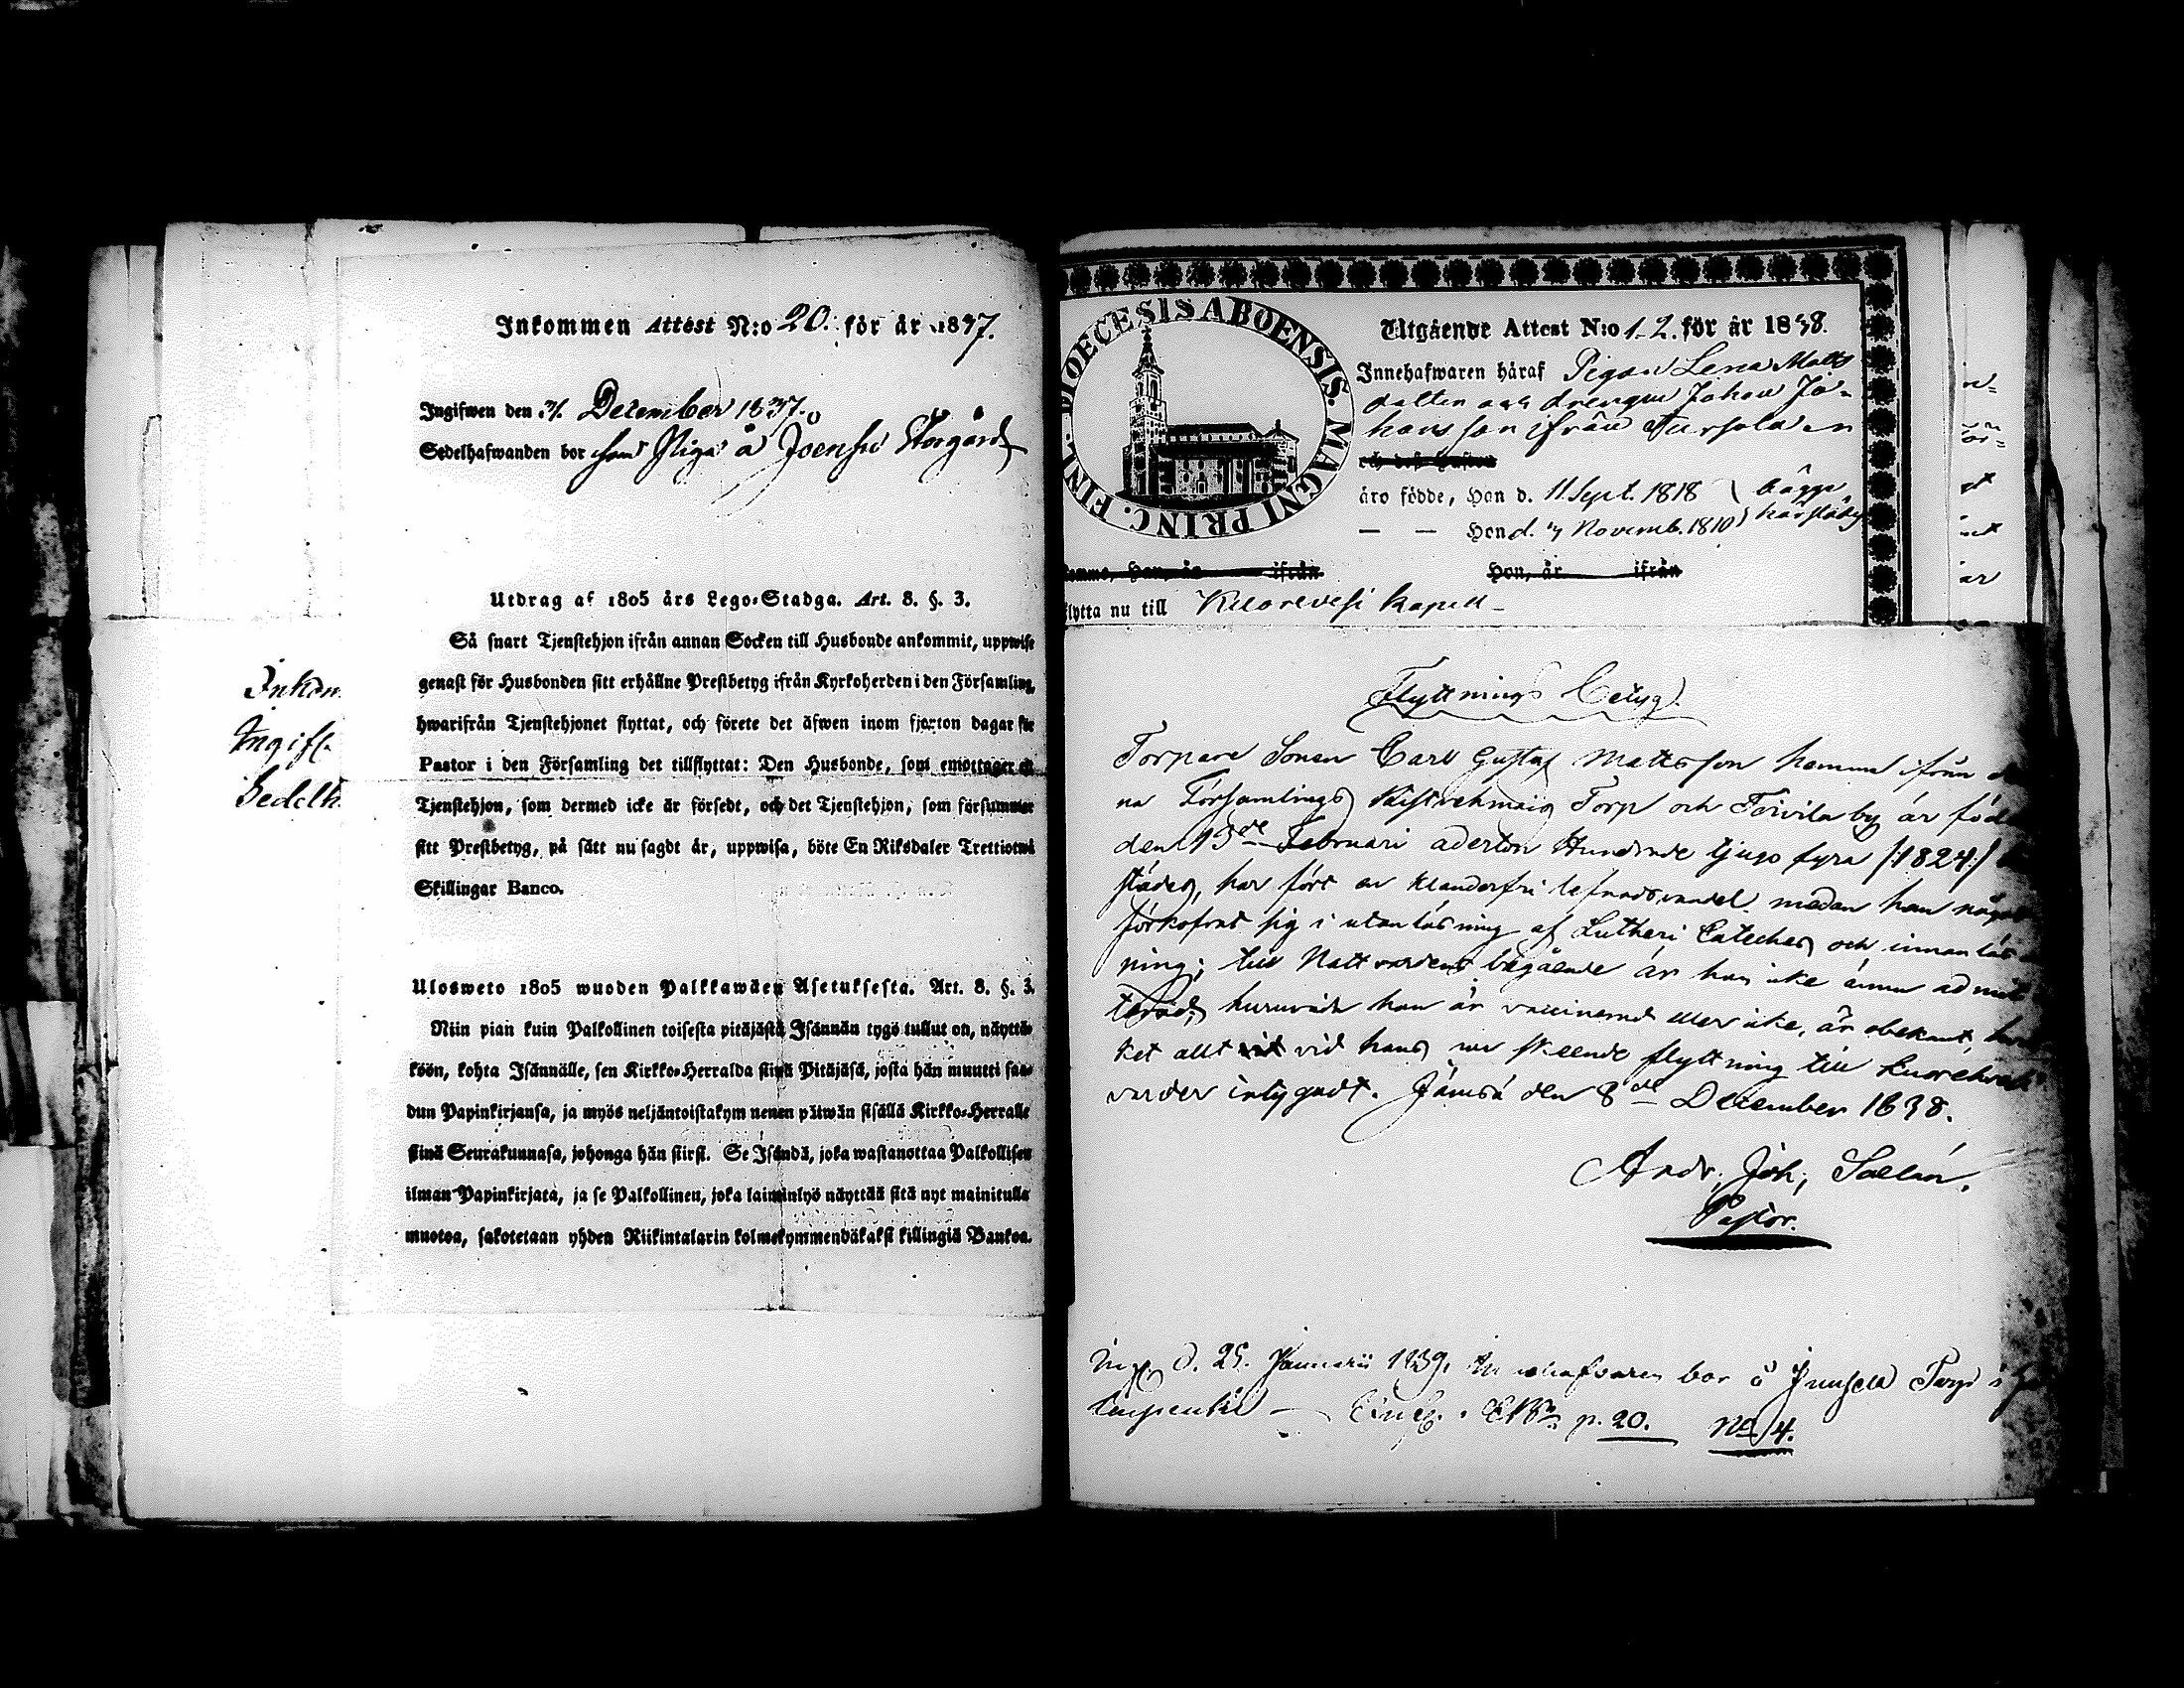 Inkommen Attest N:o 20. för år 1837.
Ingifwen den 31. December 1837.
Sedelhafwanden bor som Piga å Joensu Storgård
Utdrag af 1805 års Lego-Stadga. Art. 8. §. 3.
Så snart Tjenstehjon ifrån annan Socken till Husbonde ankommit, uppwise
genast för Husbonden sitt erhållne Prestbetyg ifrån Kyrkoherden i den Församling,
hwarifrån Tjenstehjonet flyttat, och förete det äfwen inom fjorton dagar för
Pastor i den Församling det tillflyttat: Den Husbonde, som emottager ett
Tjenstehjon, som dermed icke är försedt, och det Tjenstehjon, som försummar
sitt Prestbetyg, på sätt nu sagdt är, uppwisa, böte En Riksdaler Trettiotwå
Skillingar Banco.
Ulosweto 1805 wuoden Palkkawäen Asetuksesta. Art. 8. §. 3.
Niin pian kuin Palkollinen toisesta pitäjästä Isännän tygö tullut on, näyttä-
köön, kohta Isännälle, sen Kirkko-Herralda siinä Pitäjäsä, josta hän muutti saa-
dun Papinkirjansa, ja myös neljäntoistakym nenen päiwän sisällä Kirkko-Herralle
siinä Seurakunnasa, johonga hän siirsi. Se Isändä, joka wastanottaa Palkollisen
ilman Papinkirjata, ja se Palkollinen, joka laiminlyö näyttää sitä nyt mainitulla
muotoa, sakotetaan yhden Riikintalarin kolmekymmendäkaksi killingiä Bankoa.
Inkom
Ingif
Sedelh
FINL. DIOECESIS ABOENSIS. MAGNI PRINC.
Utgående Attest N:o 1-2. för år 1838.
Innehafwaren häraf Pigan Lena Matts
dotter och drengen Johan Jo-
hansson ifrån
och dess hustru
äro födde, Han d. 11 Sept. 1818 bägge
— — Hon d. 7 Novemb. 1810 härstädes
komne, Han, år ifrån Hon, år ifrån
flytta nu till kapell
Flyttnings Betyg.
Torpare Sonen Carl Gustaf Mattsson hemma ifrån
na Församlings Torp och Toivila by är född
den 13de Februari aderton Hundrade tjugo fyra /:1824:/
städes, har fört en klanderfri lefnadsvandel medan han något
förkofrat sig i utanläsning af Lutheri Cateches och innanläs
ning; till Nattvardens begående är han icke ännu admit
terad; huruvida han är vaccinerad eller icke, är obekant,
ket allt vid hans nu skeende flyttning till Kuorehvesi
varder intygadt. Jämsä den 8de December 1838.
Andr. Joh. Sallén.
Pastor.
Ingf. d. 25. Januarii 1839. bor å Torp i
p. 20. No 4.